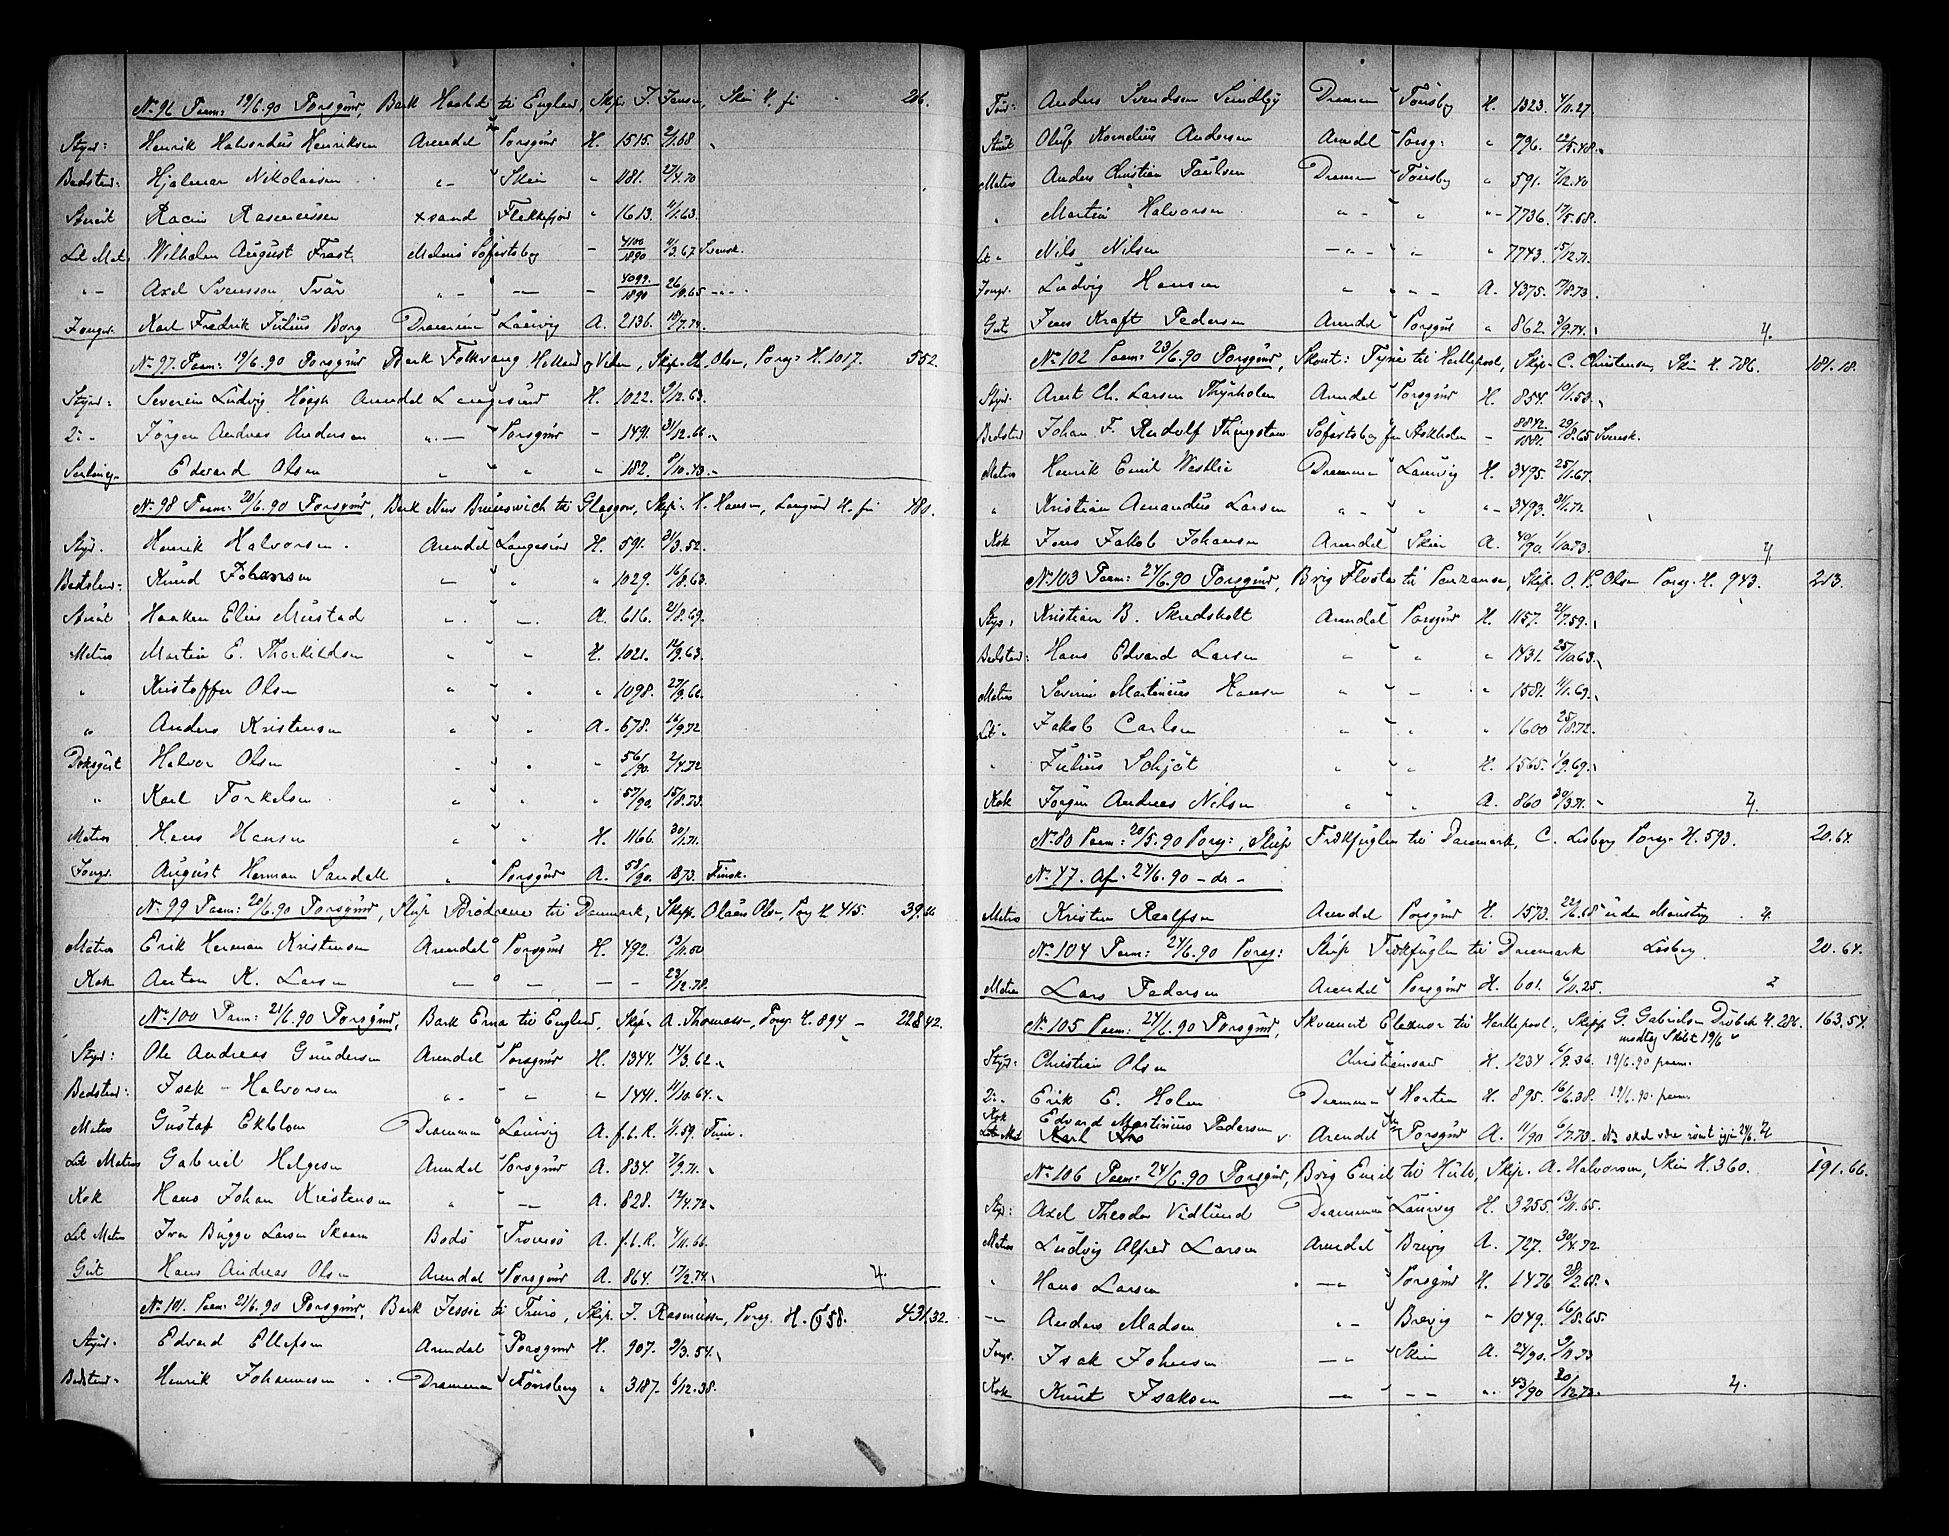 No 96 Paam: 19/6.90 Porsgund, Bark Harald til England, Skip. J. Jensen, Skien H. fi 206.
Styrd: Henrik Halvordus Henriksen Arendal Porsgund H. 1515. 2/1.68
Bådstmd: Hjalmar Nikolaisen „- Skien „ 1181. 27/4.70
Stuert Racin Rasmussen xsand Flekkefjord „ 1613. 4/1.63.
Let Mats Wilhelm August Frost Malmö Söfartsbog - 4100/1890 4/3.67 Svensk.
„- Axel Svensson Tvär „- - - 4099/1890 26/10.65 -„-
Jongm. Karl Fredrik Julius Borg Drammen Laurvig A. 2136. 18/7.74.
No 97. Paam: 19/6.90 Porsgund Bark Folkvang Holland , Skip. Chr. Olsen, Porsg: H. 1017. 552.
Styrd: Severin Ludvig Höegh Arendal Langesund H. 1022. 9/12.63.
2: „ Jörgen Andreas Andersen „ - Porsgund - 1491. 31/12.66.
Seilmag. Edvard Olsen „ „ „ 182. 9/10.43.
No 98 Paam: 20/6.90 Porsgund, Bark New Brunswich til Glasgow, Skip: H. Hansen, Langsund H. fi 480.
Styd. Henrik Halvorsen Arendal Langesund H. 591. 21/3.52.
Bådstmd: Knud Johansen - „ „ 1029. 16/8.63.
Stuert Haaken Elius Mustad „ -„. A. 616. 21/8.69.
Matros Martin E. Thorkildsen „ „ H. 1021. 12/9.63.
„ Kristoffer Olsen „ „ „ 1098. 27/9.66.
„ Anders Kristensen „ „ A. 678. 16/9.72
Dæksgut Halvor Olsen „ „ „ 56/90. 2/4.72
„ Karl Torkelsen „ „ „ 57/90. 15/8.73.
Matros Hans Hansen „ „ H. 1166. 30/1.71.
Jongm. August Herman Sandell „ Porsgund A. 58/90. 1873. Finsk.
No 99 Paam: 20/6.90 Porsgund, Slup Brödrene til Danmark, Skip. Olaus Olsen, Porsg H. 415. 39.
Matros Erik Herman Kristensen Arendal Porsgund H. 492. 13/11.50
Kok Anton K. Larsen - „ - - 23/12.78.
No 100 Paam: 21/6.90 Porsgund, Bark Erna til England, Skip. A. Thomassen, Porsg. H. 894 - 228.42.
Styrd: Ole Andreas Gundersen Arendal Porsgund H. 1344. 14/3.62.
Bådstmd: Isak Halvorsen „ „ „ 1441. 11/10.64.
Matros Gustaf Ekblom Drammen Laurvig A. f.b.R. 1/1.59. Finne.
Let Matros Gabriel Helgesen Arendal Porsgund A. 834. 2/9.71.
Kok Hans Johan Kristensen „ -„ A. 828. 12/4.72.
Let Matros Iver Bugge Larsen Skaern Bodö Tromsö A. f.b.R. 4/11.66.
Gut Hans Andreas Olsen Arendal Porsgund A. 864. 17/2.74. 4.
No 101. Paam: 21/6.90 Porsgund, Bark Jessie til Truro, Skip. J. Rasmussen, Porsg. H. 658. 431.32.
Styrd. Edvard Ellefsen Arendal Porsgund H. 907. 9/3.54.
Bådstmd. Henrik Johannesen Drammen Tönsberg „ 3187. 6/12.38.
Töm: Anders Svendsen Sundby Drammen Tönsbg H. 1323. 4/11.27.
Stuert Oluf Kornelius Andersen Arendal Porsg: „ 796. 12/5.48.
Matros Anders Christian Paulsen Drammen Tönsbg „ 591. 7/12.40
„ Martin Halvorsen „- „ „- 7736. 17/5.68.
Let „ Nils Nilsen -„- „ „- 7743. 15/12.71.
Jongm. Ludvig Hansen „ „-„ A. 4375. 7/8.73.
Gut Jens Kraft Pedersen Arendal Porsgund „ 862. 3/9.74. 4.
No 102 Paam: 23/6.90 Porsgund, Skont: Tyrie til Hartlepool, Skip. C. Christensen, Skien H. 786. 181.18.
Styrd. Arent Ch. Larsen Thyrholm Arendal Porsgund H. 854. 10/1.53.
Bådstmd Johan F. Rudolf Thingström Söfartsbog fra Stokholm - 8842./1881. 29/8.65 Svensk.
Matros Henrik Emil Westlie Drammen Laurvig H. 3495. 25/1.67.
„ Kristian Amandus Larsen „-„ „ „- 3493. 31/1.72.
Kok Jens Jakob Johansen Arendal Skien A. 40/90. 1/10.73. 4
No 103 Paam: 24/6.90 Porsgund, Brig Flosta til Penzance, Skip. O. P. Olsen Porsg. H. 943. 213.
Styr: Kristian B. Skredsholt Arendal Porsgund H. 1157. 21/7.59.
Bådstmd: Hans Edvard Larsen „ „ „ 1431. 25/10.63.
Matros Severin Martinius Hansen „ - „ 1581. 11/1.69.
Let „ Jakob Carlsen „ „ „ 1600 25/8.72.
„ Julius Schjöt „ „ H. 1565. 1/9.69.
Kok Jörgen Andreas Nilsen „ „ A. 860 30/3.71. 4.
No 80 Paam: 20/5.90 Porsg:, Slup Trækfuglen til Danmark, C. Lisberg Porsg. H. 593. 20.64.
No 47. Af. 24/6.90 - do -
Matros Kristen Realfsen Arendal Porsgund H. 1573. 22/6.68 uden Mønstrg. 4.
No 104 Paam: 24/6.90 Porsg: Slup Trækfuglen til Danmark Lisberg. 20.64.
Matros Lars Pedersen Arendal Porsgund H. 601. 6/11.25. 2
No 105 Paam: 24/6.90 Porsgund, Skonnert Eleanor til Hartlepool, Skipp G. Gabrielsen Dröbak H. 286. 163.54.
modtog Skibet 19/6
Styr: Christian Olsen Christiansand H. 1234 6/9.36. 19/6.90 paam.
2: „ Erik E. Holm Drammen Horten H. 895. 16/6.38. 19/6.90. paam.
Kok Edvard Martinius Pedersen Arendal Porsgund A. 11/90 6/7.73. No skal være rømt igjen 24/6. 4
Let Mat Karl Kris
No 106 Paam: 24/6.90 Porsgund, Brig Emil til Hull, Skip. A. Halvorsen, Skien H. 360. 191.66.
Styr: Axel Theodor Vidlund Drammen Laurvig H. 3255. 13/11.65.
Matros Ludvig Alfred Larsen Arendal Brevig A. 727. 30/4.72
„ Hans Larsen -„ Porsgund H. 1476 28/2.68.
-„- Anders Madsen „- Brevig „ 1049. 16/8.65.
Jongm. Isak Johnsen -„ Skien A. 24/90. 9/11.73
Kok Knut Isaksen - -- „. 43/90 20/12.73. 4.